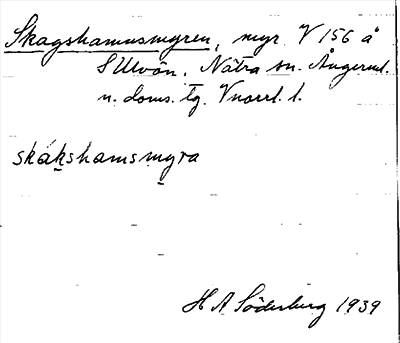 Skagshamnsmyren, myr V 156 å
S Ulvön. Nätra sn. Ångerml.
n. doms. tg. Vnorrl. l.
skákshamsmyra
H A Söderberg 1939